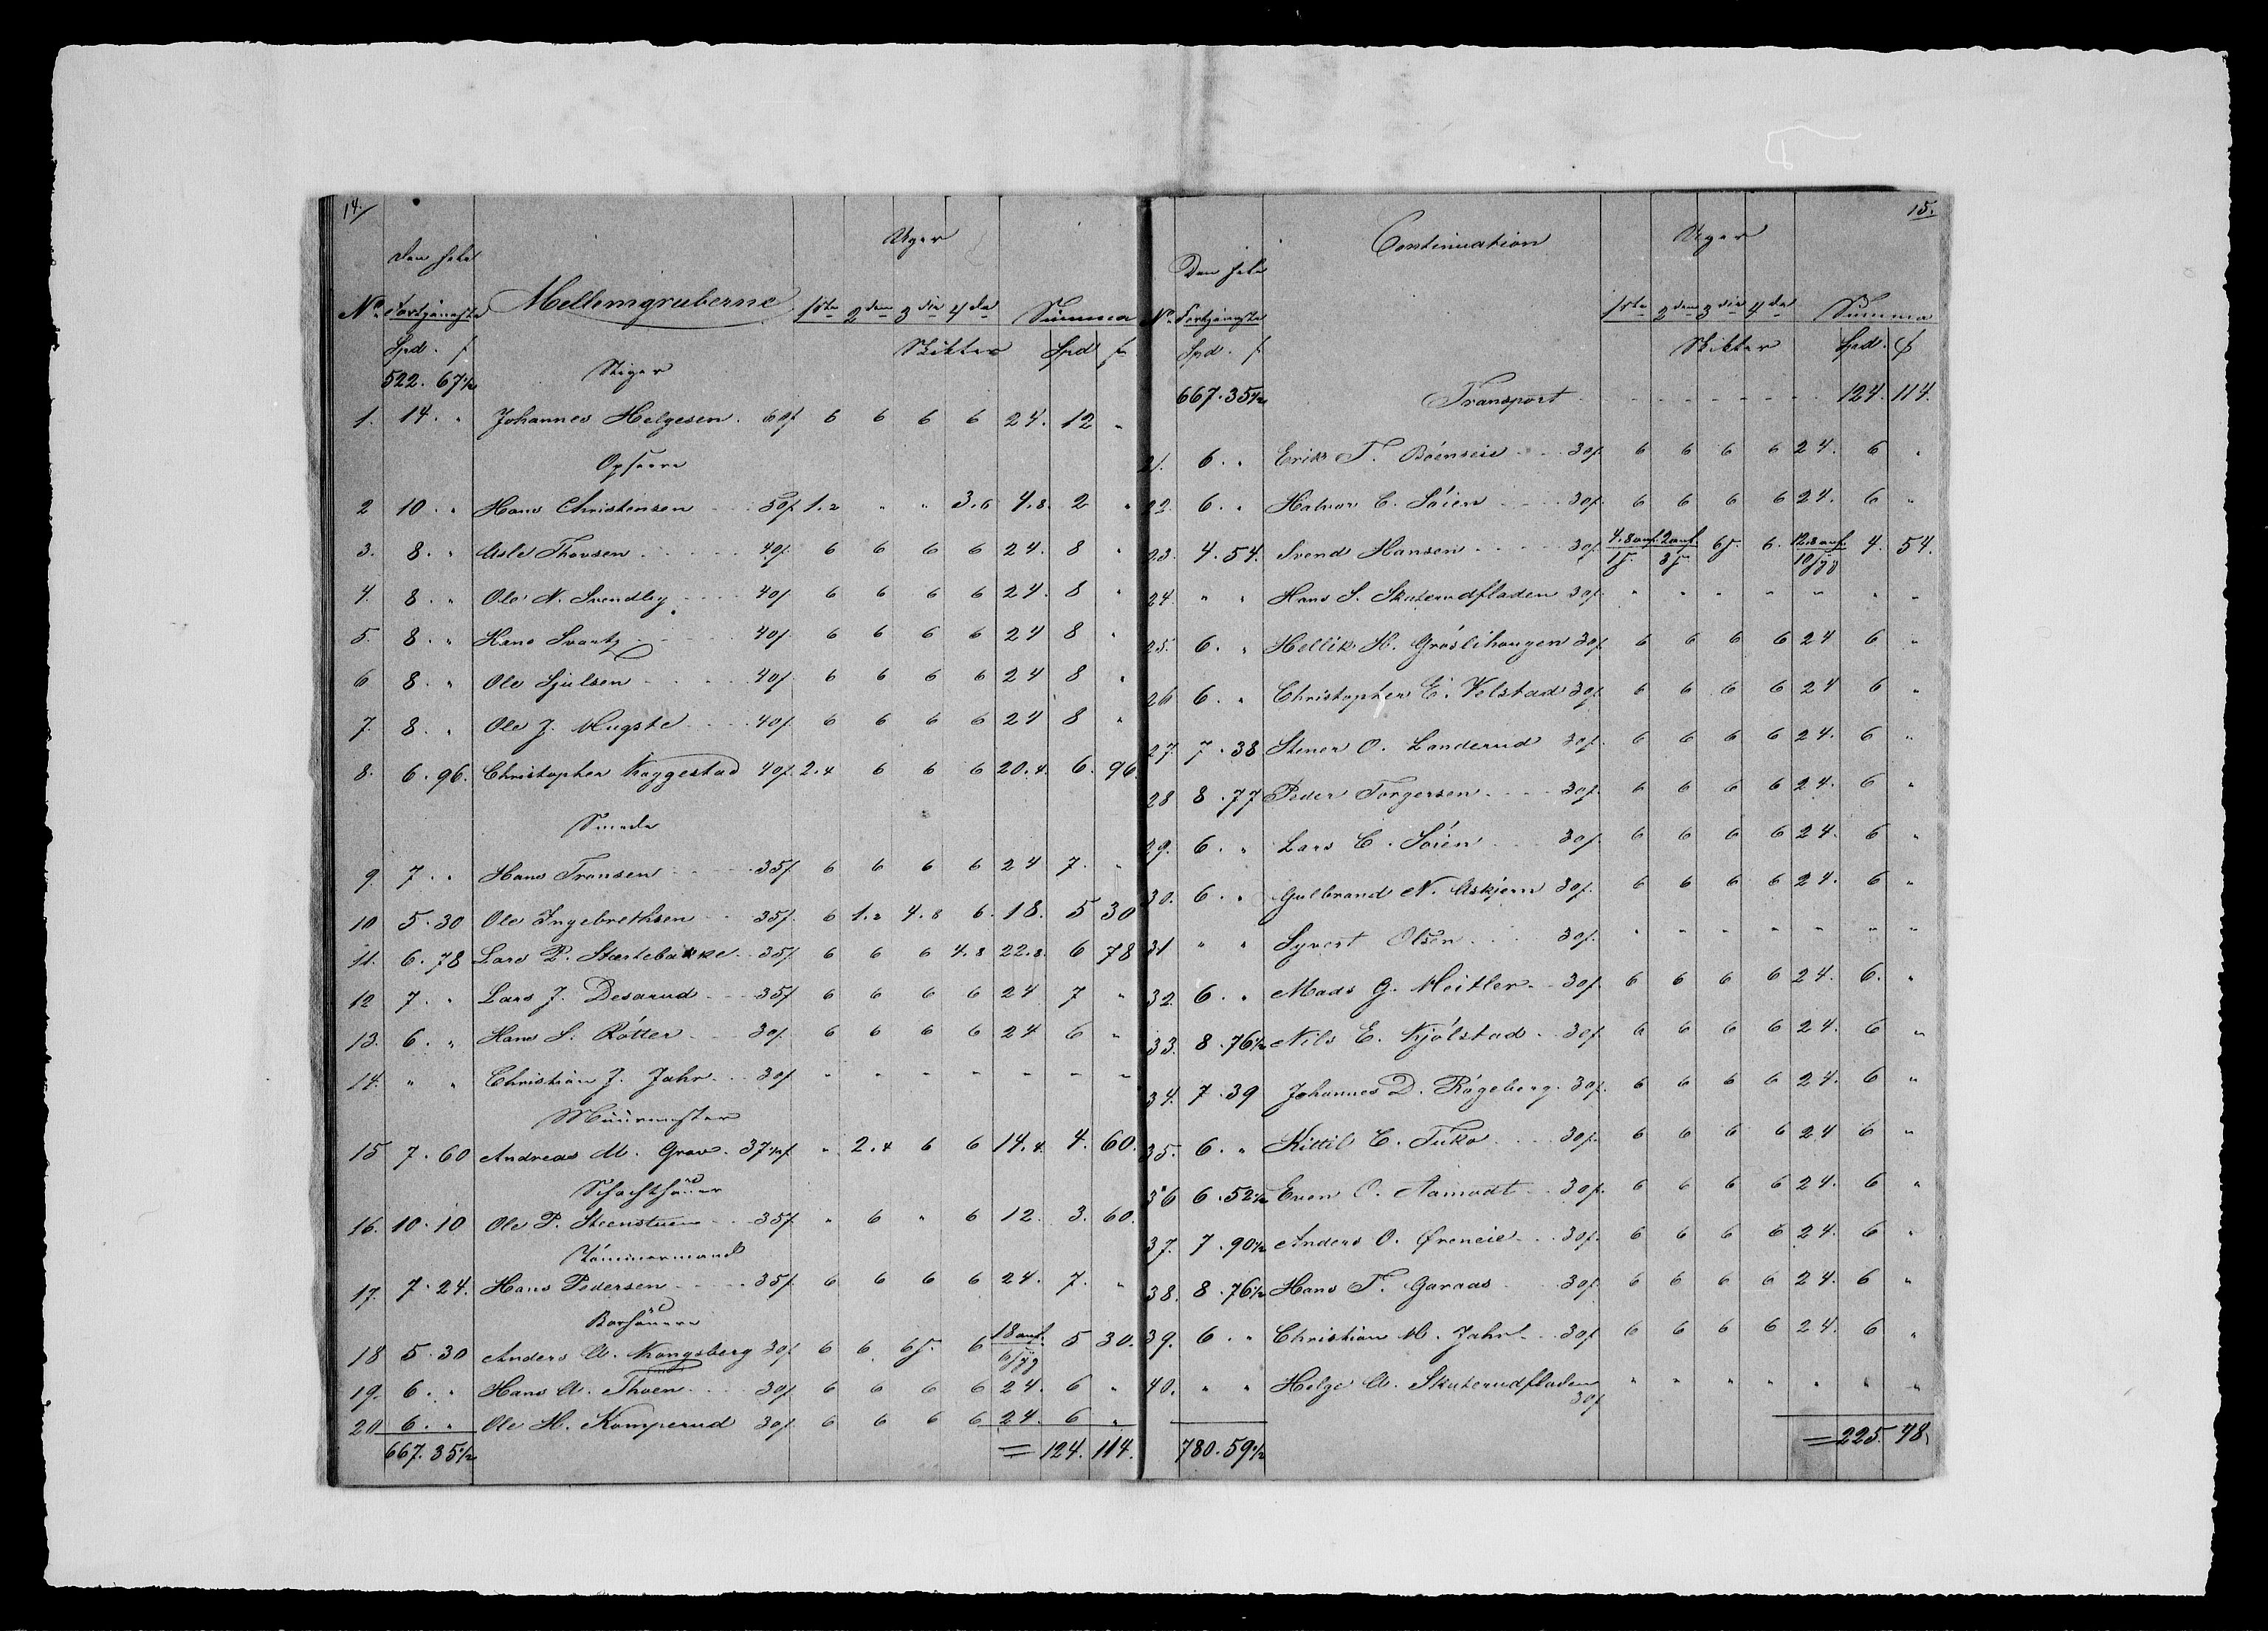 14.
Uger
Den hele
No. Fortjeneste Mellemgruberne 1ste 2den 3die 4de Summa
Spd. ß Skikter Spd ß
522. 67½ Stiger
1. 14. " Johannes Helgesen. 60ß 6 6 6 6 24. 12 "
2 10. " Hans Christensen 50ß 1.2 " " 3.6 4.8. 2 "
3. 8. " Asle Thovsen 40ß 6 6 6 6 24 8 "
4. 8. " Ole N. Svendby 40ß 6 6 6 6 24. 8 "
5. 8. " Hans Svartz 40ß 6 6 6 6 24 8 "
6 8. " Ole Gjulsen 40ß 6 6 6 6 24 8 "
7. 8. " Ole J. Mugste 40ß 6 6 6 6 24 8 "
8. 6. 96. Christopher Kaggestad 40ß 2.4 6 6 6 20.4. 6. 96.
Smede
9. 7. " Hans Fransen 35ß 6 6 6 6 24 7. "
10 5. 30 Ole Ingebrethsen 35ß. 6 1.2 4.8 6. 18. 5 30
11. 6. 78 Lars P. Stærtebakke 35ß 6 6 6 4.8 22.8. 6 78
12 7. " Lars J. Desarud 35ß 6 6 6 6 24 7 "
13. 6. " Hans S. Rótter 30ß. 6 6 6 6 24 6 "
14. " " Christian J. Jahr 30ß " " " " " " "
Muurmester
15 7. 60 Andreas M. Grav. 37½ß " 2.4 6 6 14.4. 4. 60.
16. 10. 10 Ole P. Steenstuen 35ß. " 6 " 6 12. 3. 60.
Tömmermand
17. 7. 24. Hans Pedersen 35ß. 6 6 6 6 24. 7. "
Borhauere
18 5. 30 Anders A. Kongsberg 30ß 6 6 6s. 6 18 anf. 6/syg 5 30.
19. 6. " Hans A. Thoen 30ß. 6 6 6 6 24. 6 "
20 6. " Ole H. Komperud 30ß 6 6 6 6 24. 6 "
667. 35½ = 124. 114.
15.
Continuation Uger
Den hele
No. Fortjeneste 1ste 2den 3die 4de Summa
Spd. ß Skikter Spd. ß
667. 35½ Transport 124. 114.
21. 6. " Erik T. Böenseie 30ß 6 6 6 6 24. 6 "
22. 6. " Halvor C. Söien 30ß. 6 6 6 6 24. 6 "
23. 4. 54. Svend Hansen 30ß 4.8 anf. 1s. 2 anf. 3s. 6s. 6. 12.8 anf. 10/syg 4. 54.
24. " " Hans S. Skuterudfladen 30ß. " " " " " " "
25. 6. " Hellik H. Gróslihaugen 30ß. 6 6 6 6 24 6 "
26 6. " Christopher E. Velstad 30ß. 6 6 6 6 24 6 "
27. 7. 38 Stener O. Landerud 30ß. 6 6 6 6 24. 6 "
28 8. 77 Peder Torgersen 30ß. 6 6 6 6 24. 6 "
29. 6. " Lars C. Söien 30ß. 6 6 6 6 24. 6 "
30. 6. " Gulbrand N. Askjem 30ß. 6 6 6 6 24. 6 "
31 " " Syvert Olsen 30ß. " " " " " " "
32. 6. " Mads G. Meitler 30ß. 6 6 6 6 24. 6. "
33. 8. 76½ Nils E. Kjólstad 30ß. 6 6 6 6 24. 6 "
34. 7. 39 Johannes D. Rógeberg. 30ß. 6 6 6 6 24. 6 "
35. 6. " Kittil C. Tukó 30ß. 6 6 6 6 24 6 "
36 6. 52½ Even O. Aamodt 30ß. 6 6 6 6 24. 6 "
37. 7. 90½ Anders O. Øreneie 30ß. 6 6 6 6 24. 6 "
38. 8. 76½ Hans T. Garaas 30ß. 6 6 6 6 24. 6 "
39. 6. " Christian M. Jahr 30ß 6 6 6 6 24. 6 "
40. " " Helge A. Skuterudfladen 30ß " " " " " " "
780. 59½ = 225. 48.